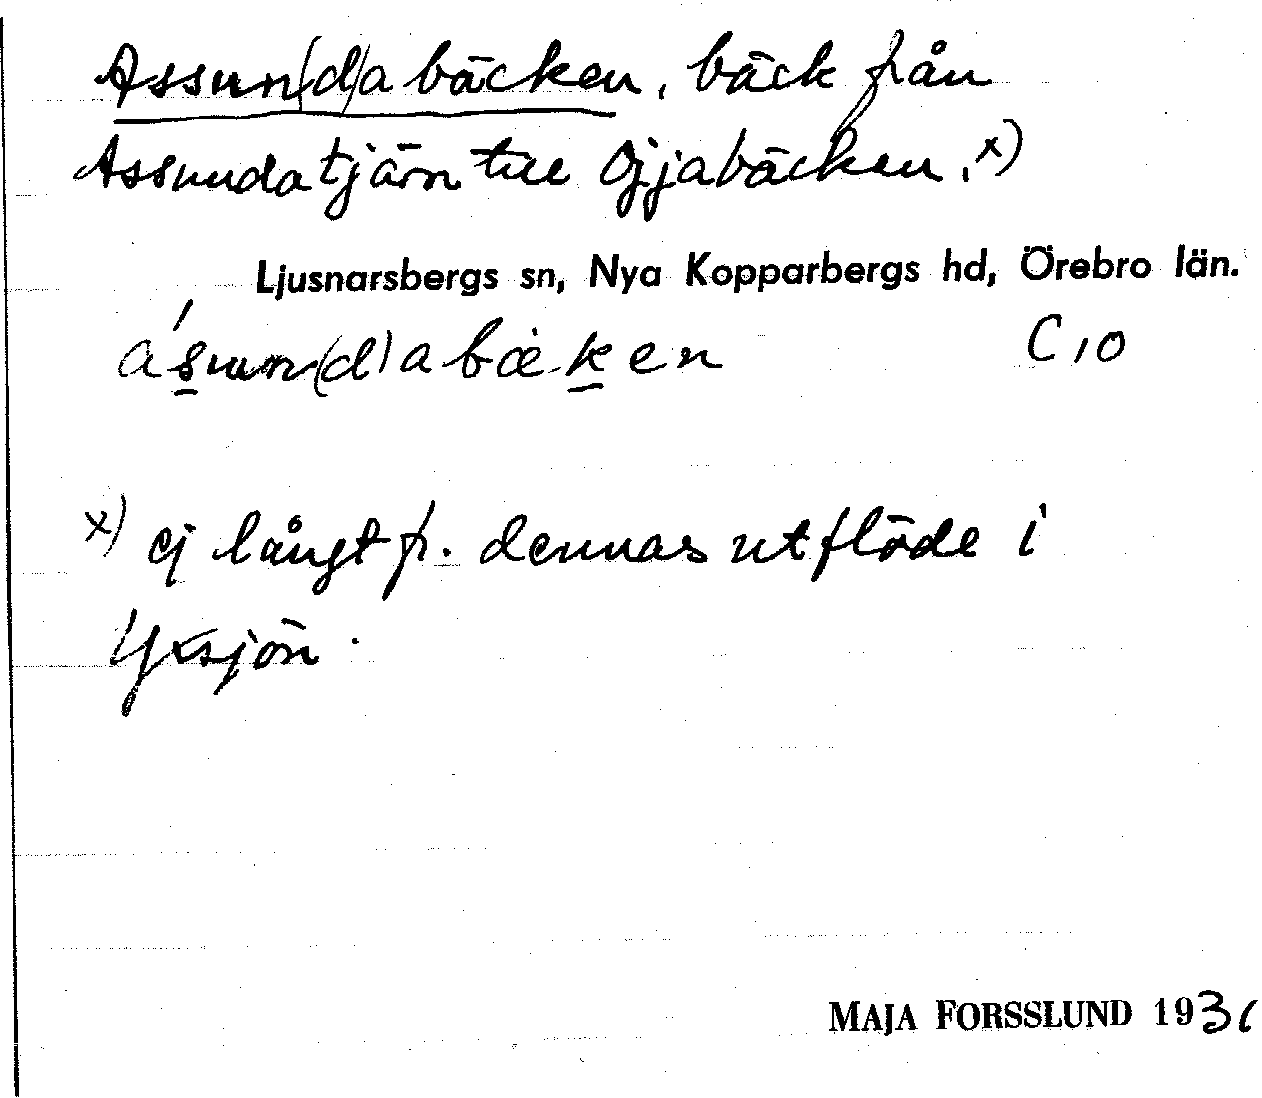 Assun(d)abäcken, bäck från
Assundatjärn till Ojjabäcken.x)
Ljusnarsbergs sn, Nya Kopparbergs hd, Örebro län.
C 10
x) ej långt fr. dennas utflöde i
Yxsjön.
MAJA FORSSLUND 193